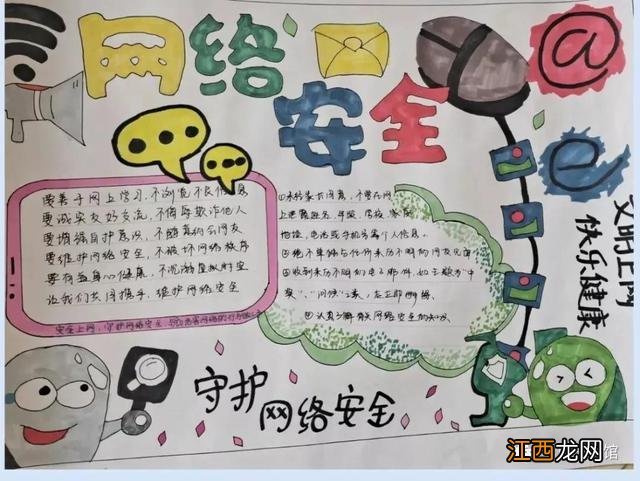 网络
安全
@
要善于网上学习,不浏览不良信息
要诚实友好交流,不侮辱欺诈他人
要增强自护意识,不随意约会网友
要维护网络安全,不破坏网络秩序
要有益身心健康,不沉溺虚拟时空
让我们共同携手,维护网络安全
安全上网,守护网络安全
①未经家长同意,不要在网
上透露姓名、年级、学校、家庭
地址、电话或手机号等个人信息。
②绝不单独与任何来历不明的网友见面
③收到来历不明的电子邮件,如主题为“中
奖”、“问候”之类,应立即删除
④认真了解有关网络安全的知识
文明上网
快乐健康
守护
网络安全
江西龙网
馆